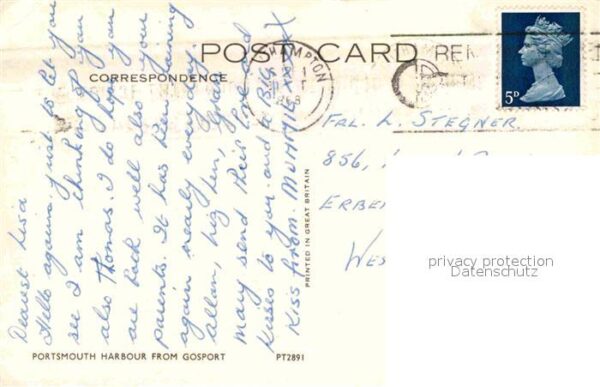 POST CARD
CORRESPONDENCE
HAMPTON
REN
5D
Dearest Lisa
Hello again, just to let you
see I am thinking of you
also Thomas. I do hope you
are back well also your
parents. It has been raining
again nearly everyday.
Allan,
may send their Love and
kisses to you. and a BIG
Kiss from. MUMMIE XXXXX
FRL. L. STEGNER.
856,
ERBE
WES
PRINTED IN GREAT BRITAIN
privacy protection
Datenschutz
PORTSMOUTH HARBOUR FROM GOSPORT
PT2891